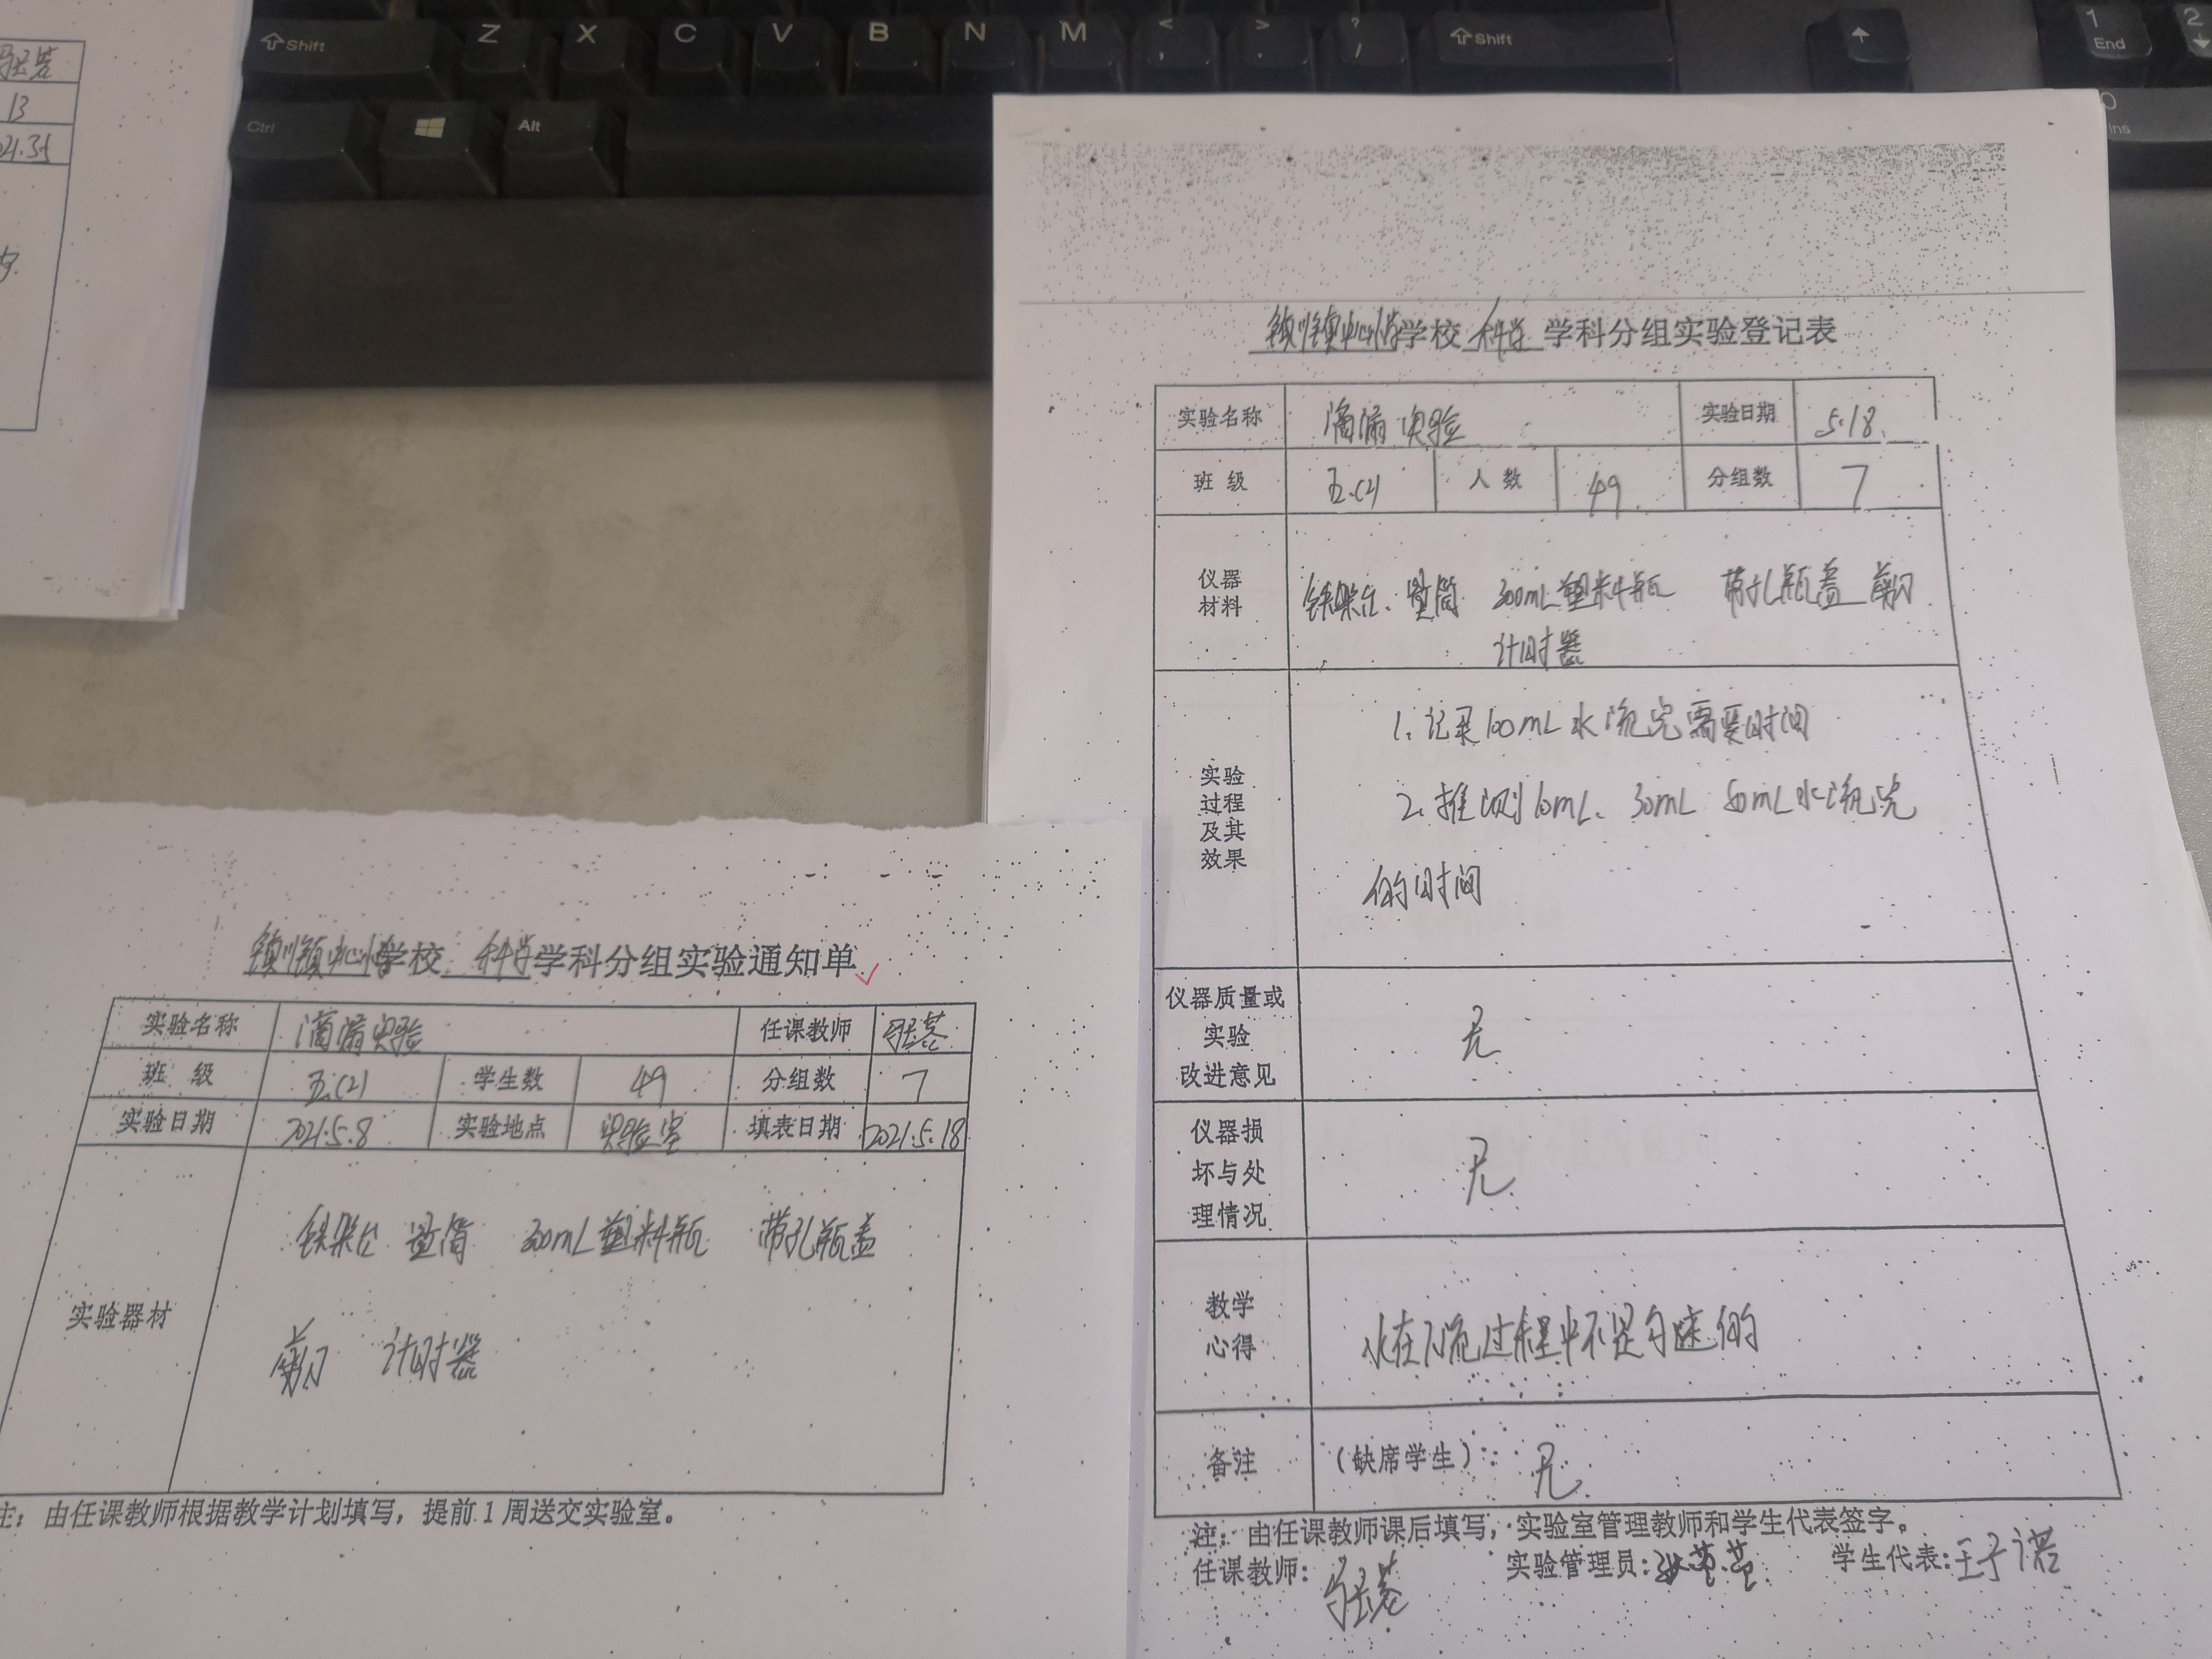 Shift Z X C V B N M < , > . ? / Shift 1 End 2
Ctrl Alt 0 Ins
13
镇川镇中心小学学校 科学 学科分组实验登记表
实验名称 滴漏实验 实验日期 5.18.
班 级 五.(2) 人 数 49. 分组数 7
仪器
材料
铁架台、量筒 300mL塑料瓶 带孔瓶盖 剪刀
计时器
实验
过程
及其
效果
1. 记录100mL水流完需要时间
2. 推测10mL、30mL 50mL水流完
的时间
仪器质量或
实验
改进意见
无
仪器损
坏与处
理情况
无
教学
心得
水在下流过程中不是匀速的
备注 (缺席学生): 无.
注: 由任课教师课后填写, 实验室管理教师和学生代表签字。
任课教师: 实验管理员: 学生代表: 王子诺
镇川镇中心小学学校 科学 学科分组实验通知单
实验名称 滴漏实验 任课教师
班 级 五.(2) 学生数 49 分组数 7
实验日期 2021.5.8 实验地点 实验室 填表日期 2021.5.18
实验器材
铁架台 量筒 300mL塑料瓶 带孔瓶盖
剪刀 计时器
注: 由任课教师根据教学计划填写, 提前1周送交实验室。